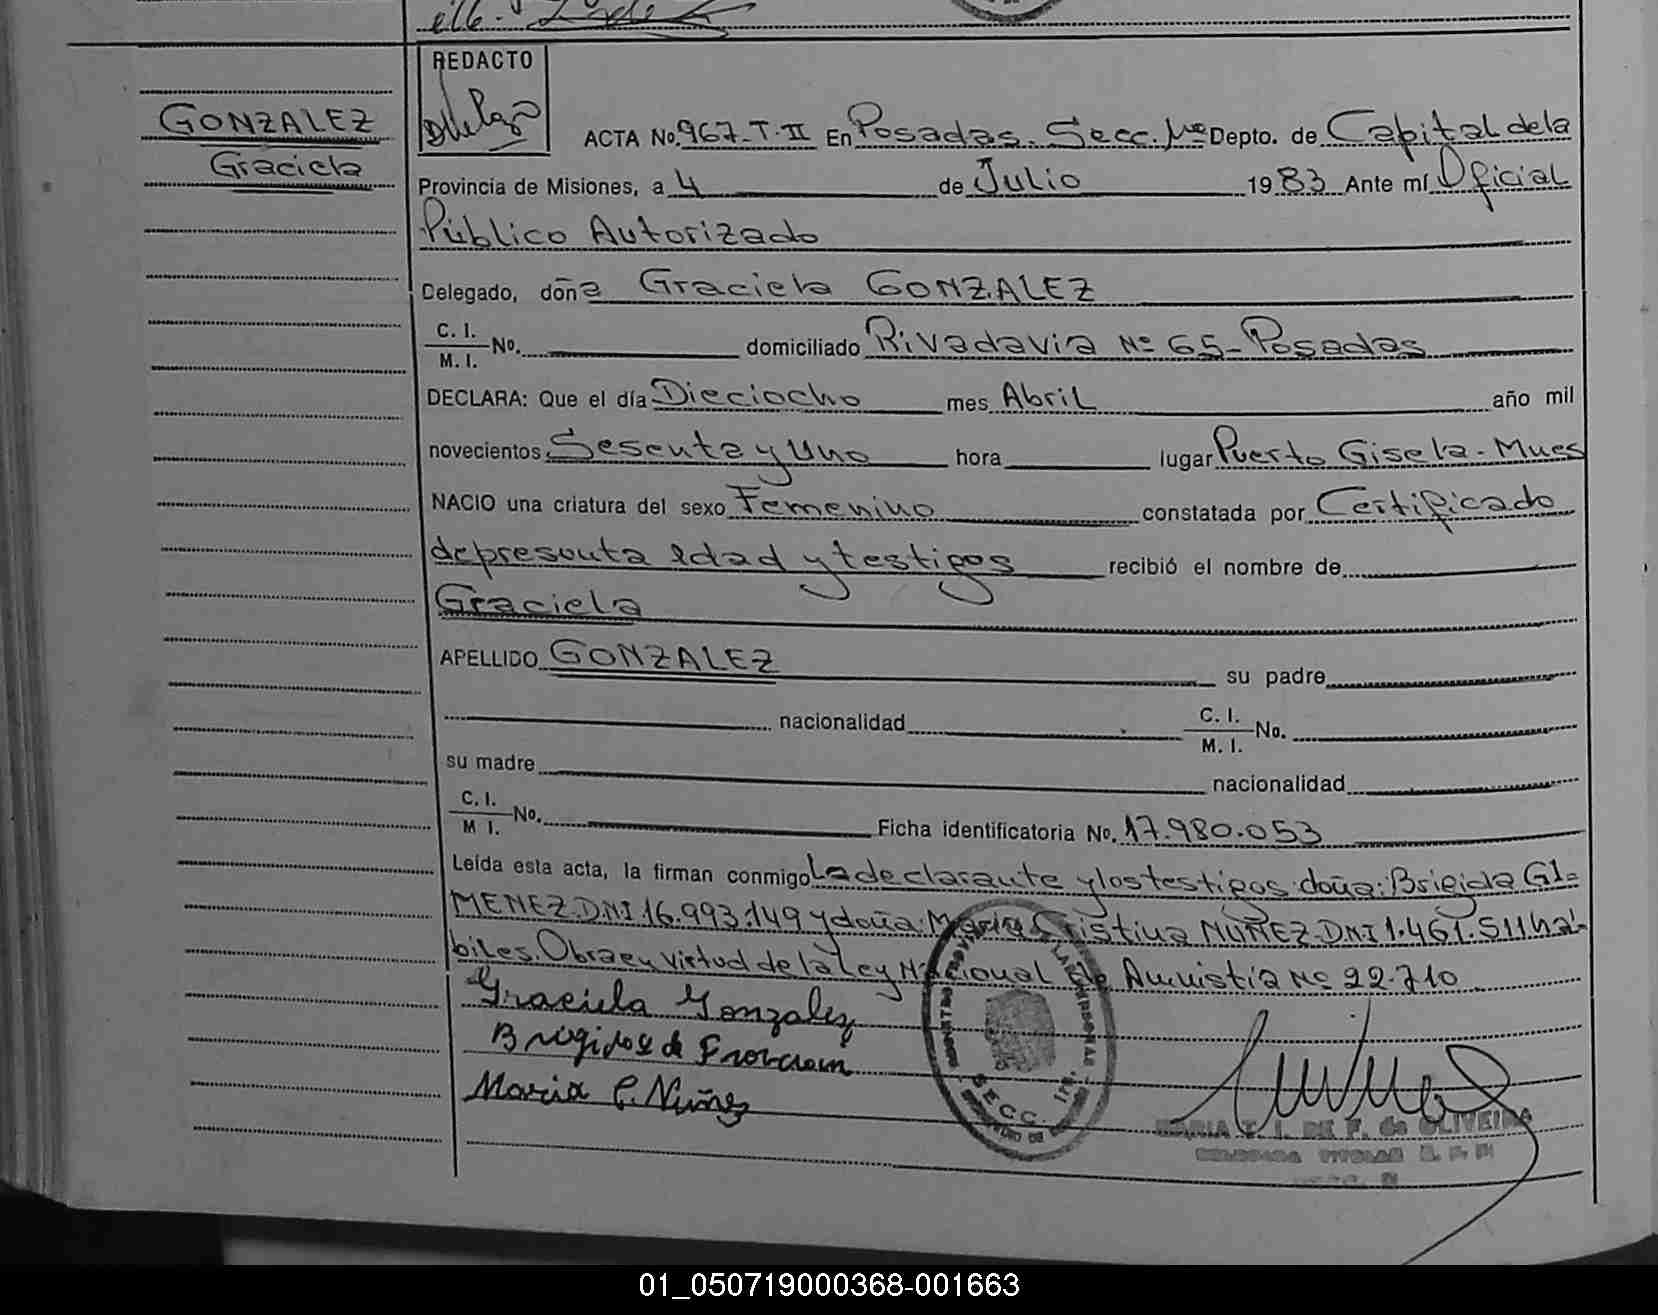 REDACTO
GONZALEZ
Graciela
ACTA No. 967-T-II En Posadas. Secc. Depto. de Capital de la
Provincia de Misiones, a 4 de Julio 1983 Ante mí Oficial
Público Autorizado
Delegado, doña Graciela GONZALEZ
C. I.
M. I. No. domiciliado Rivadavia Nº 65-Posadas
DECLARA: Que el día Dieciocho mes Abril año mil
novecientos Sesenta y Uno hora lugar Puerto Gisela - Mnes
NACIO una criatura del sexo Femenino constatada por Certificado
de presunta edad y testigos recibió el nombre de
Graciela
APELLIDO GONZALEZ su padre
nacionalidad C. I.
M. I. No.
su madre nacionalidad
C. I.
M I. No. Ficha identificatoria No. 17.980.053
Leída esta acta, la firman conmigo La declarante y los testigos doña: Brigida GI=
MENEZ-DNI 16.993.149 y doña: María Cristina NUÑEZ-DNI 1.461.511 há-
biles. Obra en virtud de la Ley Nacional de Amnistia Nº 22.710
Graciela Gonzalez
Maria C. Nuñez
SECC.
MARIA T. I. DE F. de OLIVEIRA
DELEGADA TITULAR
01_050719000368-001663